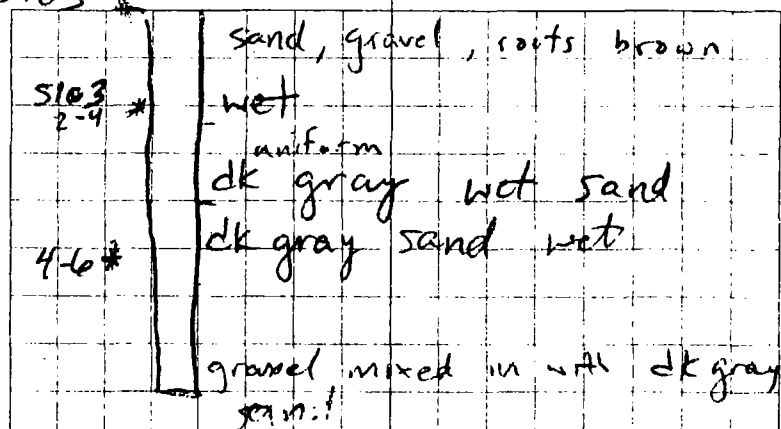 sand, gravel, roots brown
S103 *
2-4
wet
uniform
dk gray wet sand
dk gray sand wet
4-6 *
gravel mixed in with dk gray